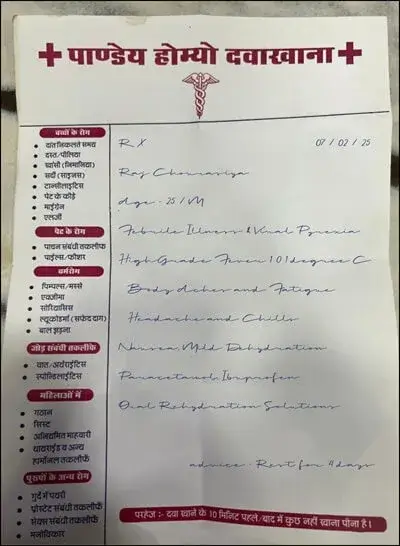 पाण्डेय होम्यो दवाखाना
बच्चों के रोग
दांत निकलते समय
दस्त/पीलिया
खांसी (निमोनिया)
सर्दी (साइनस)
टान्सीलाइटिस
पेट के कीड़े
माईग्रेन
एलर्जी
पेट के रोग
पाचन संबंधी तकलीफ
पाईल्स/फीशर
चर्मरोग
पिम्पल्स/मस्से
एक्जीमा
सोरियासिस
ल्यूकोडर्मा (सफेद दाग)
बाल झड़ना
जोड़ संबंधी तकलीफें
वात/अर्थराईटिस
स्पोंडिलाईटिस
महिलाओं में
गठान
सिस्ट
अनियमित माहवारी
थायराईड व अन्य
हार्मोनल तकलीफें
पुरुषों के अन्य रोग
गुर्दे में पथरी
प्रोस्टेट संबंधी तकलीफें
सेक्स संबंधी तकलीफें
मनोविकार
RX 07/02/25
Raj Chourasiya
age - 25/M
Febrile Illness & Viral Pyrexia
High Grade Fever 101 degree C
Body Aches and Fatigue
Headache and Chills
Nausea, Mild Dehydration
Paracetamol, Ibuprofen
Oral Rehydration Solutions
advice - Rest for 4 days
परहेज :- दवा खाने के 10 मिनिट पहले/बाद में कुछ नहीं खाना पीना है।